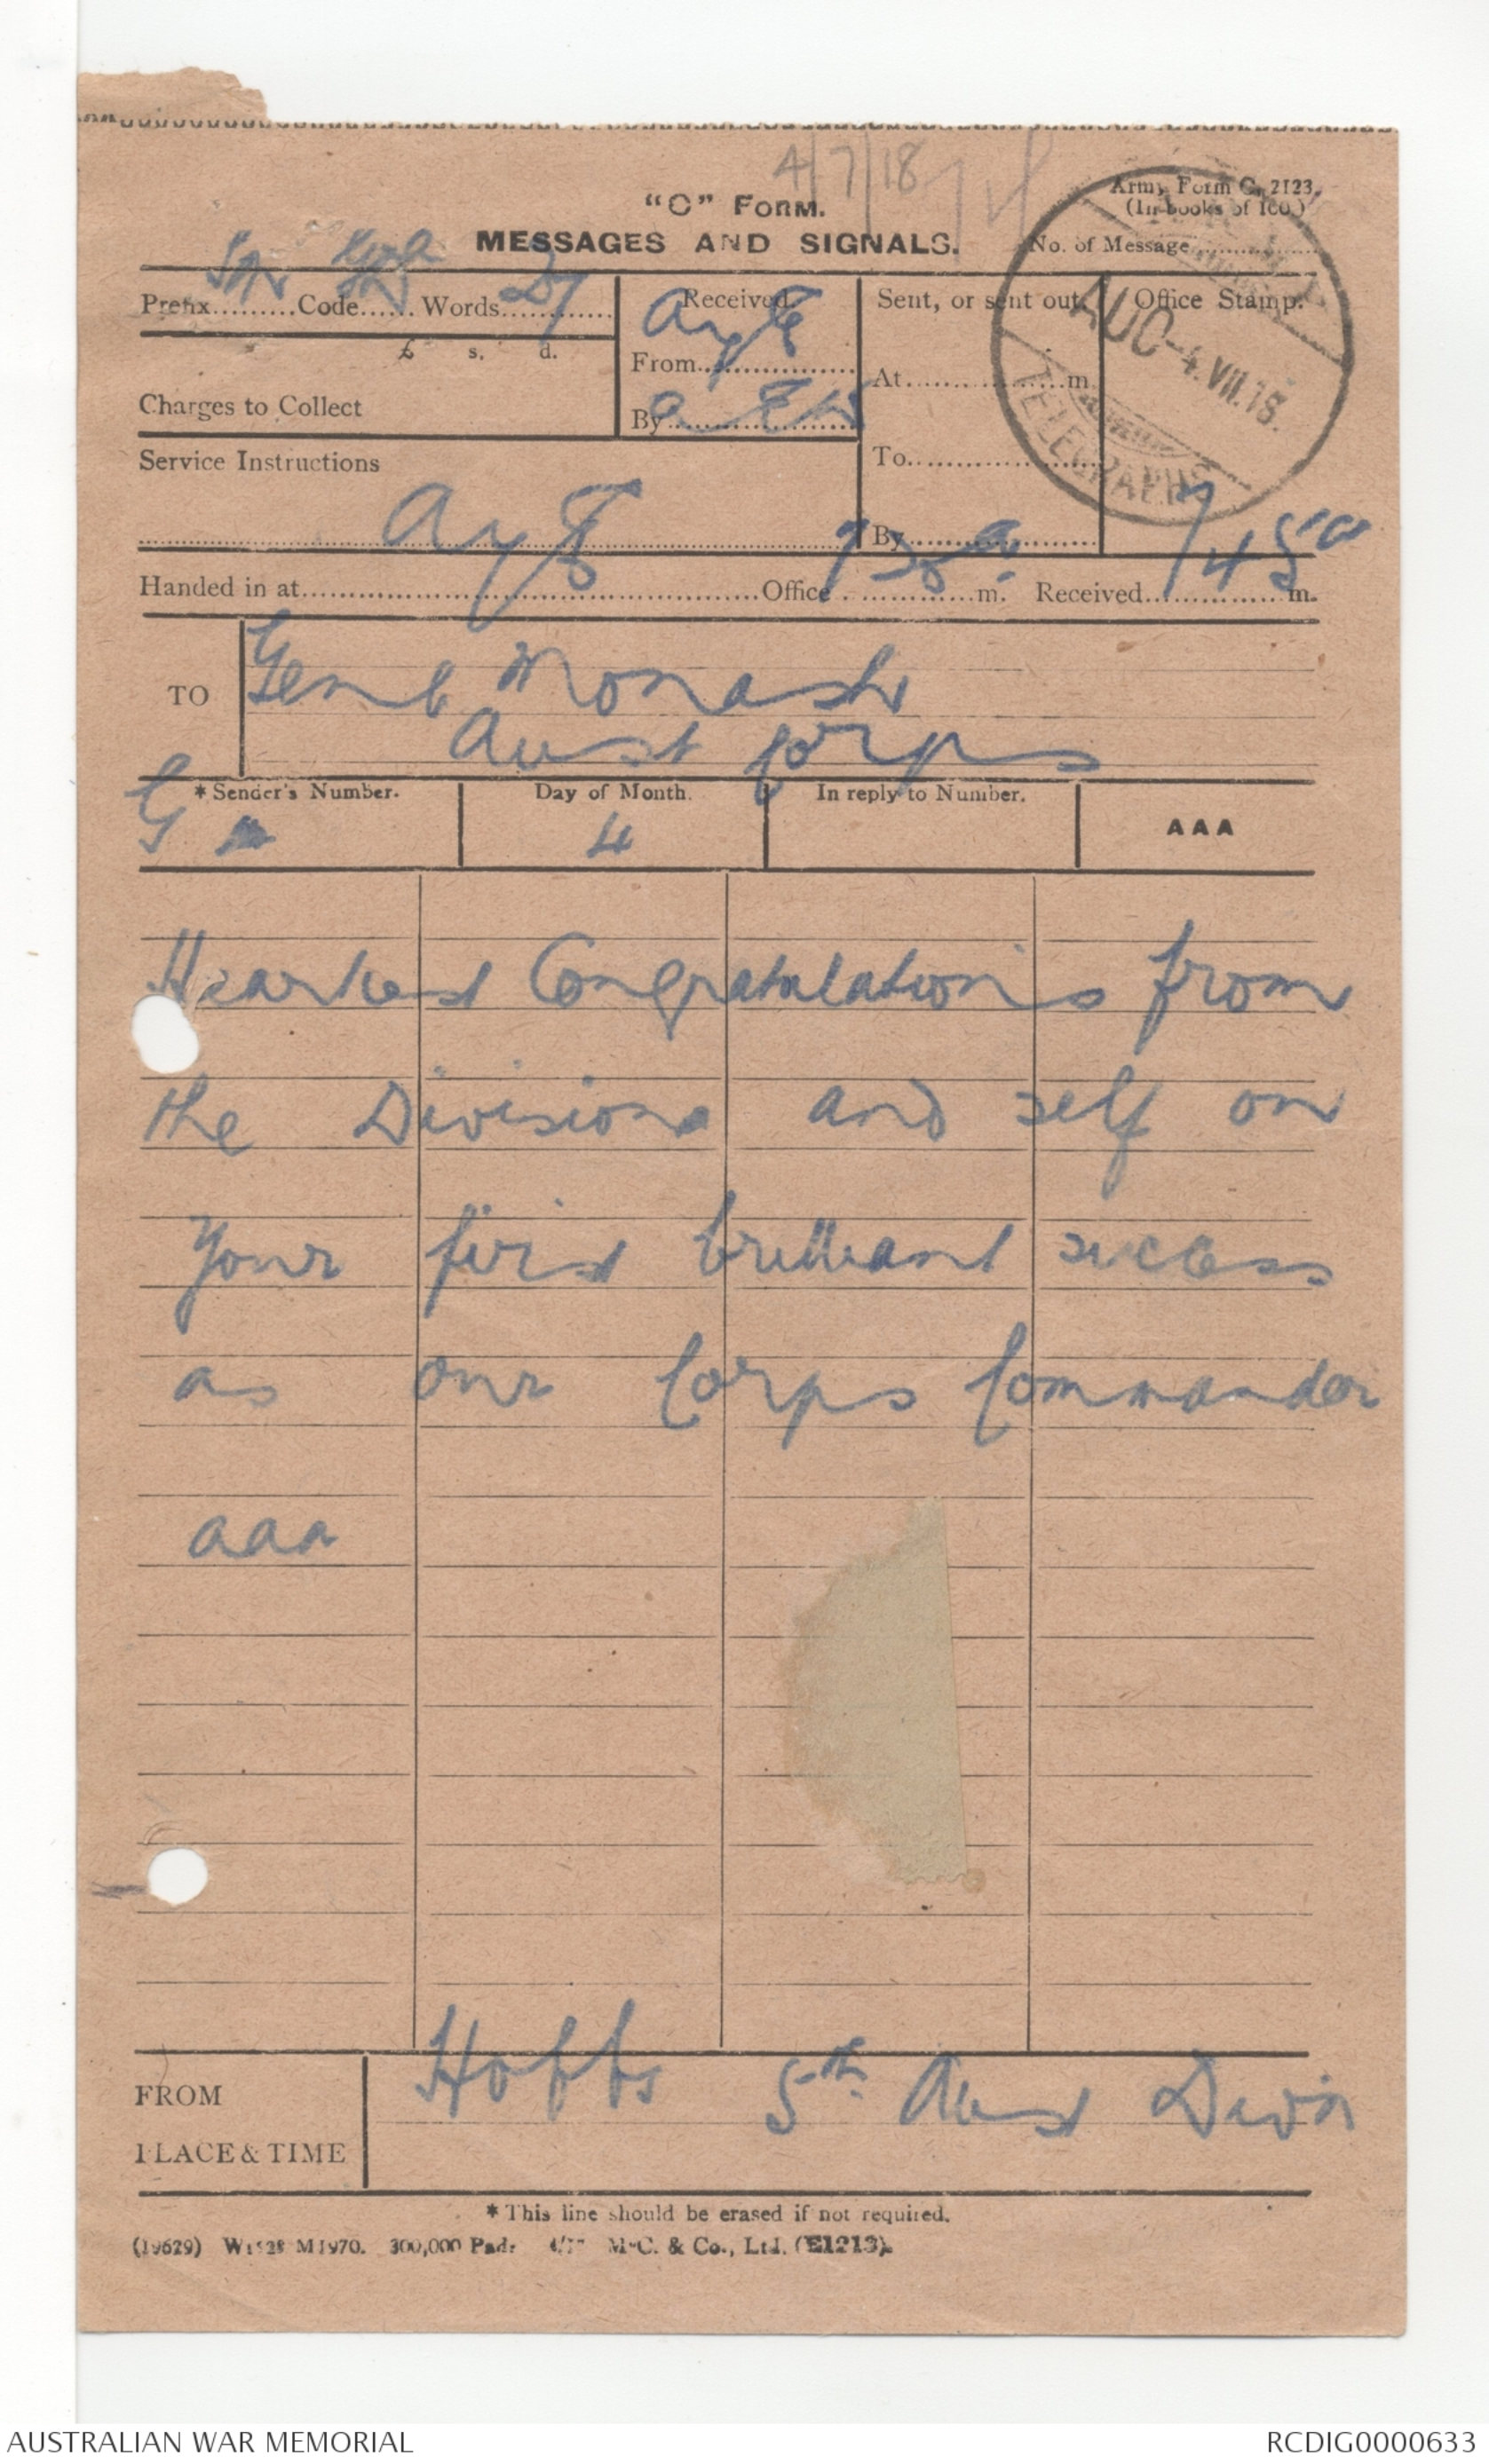 4/7/18
"C" FORM.
MESSAGES AND SIGNALS.
Army Form C. 2123.
(In books of 100.)
No. of Message
Prefix Code Words 27
£ s. d.
Charges to Collect
Received.
From
By
Sent, or sent out.
At m.
To
By
Office Stamp.
AUC -4.VII.18.
TELEGRAPHS
Service Instructions
Handed in at Office 735a m. Received 745a m.
TO Genl Monash
Aust Corps
*Sender's Number. Day of Month. In reply to Number. AAA
G 4
Heartiest Congratulations from
the Division and self on
Your first brilliant success
as our Corps Commander
aaa
FROM Hobbs 5th Aust Divn
PLACE & TIME
*This line should be erased if not required.
(19629) M1970. 300,000 Pads McC. & Co., Ltd. (E1213).
AUSTRALIAN WAR MEMORIAL
RCDIG0000633